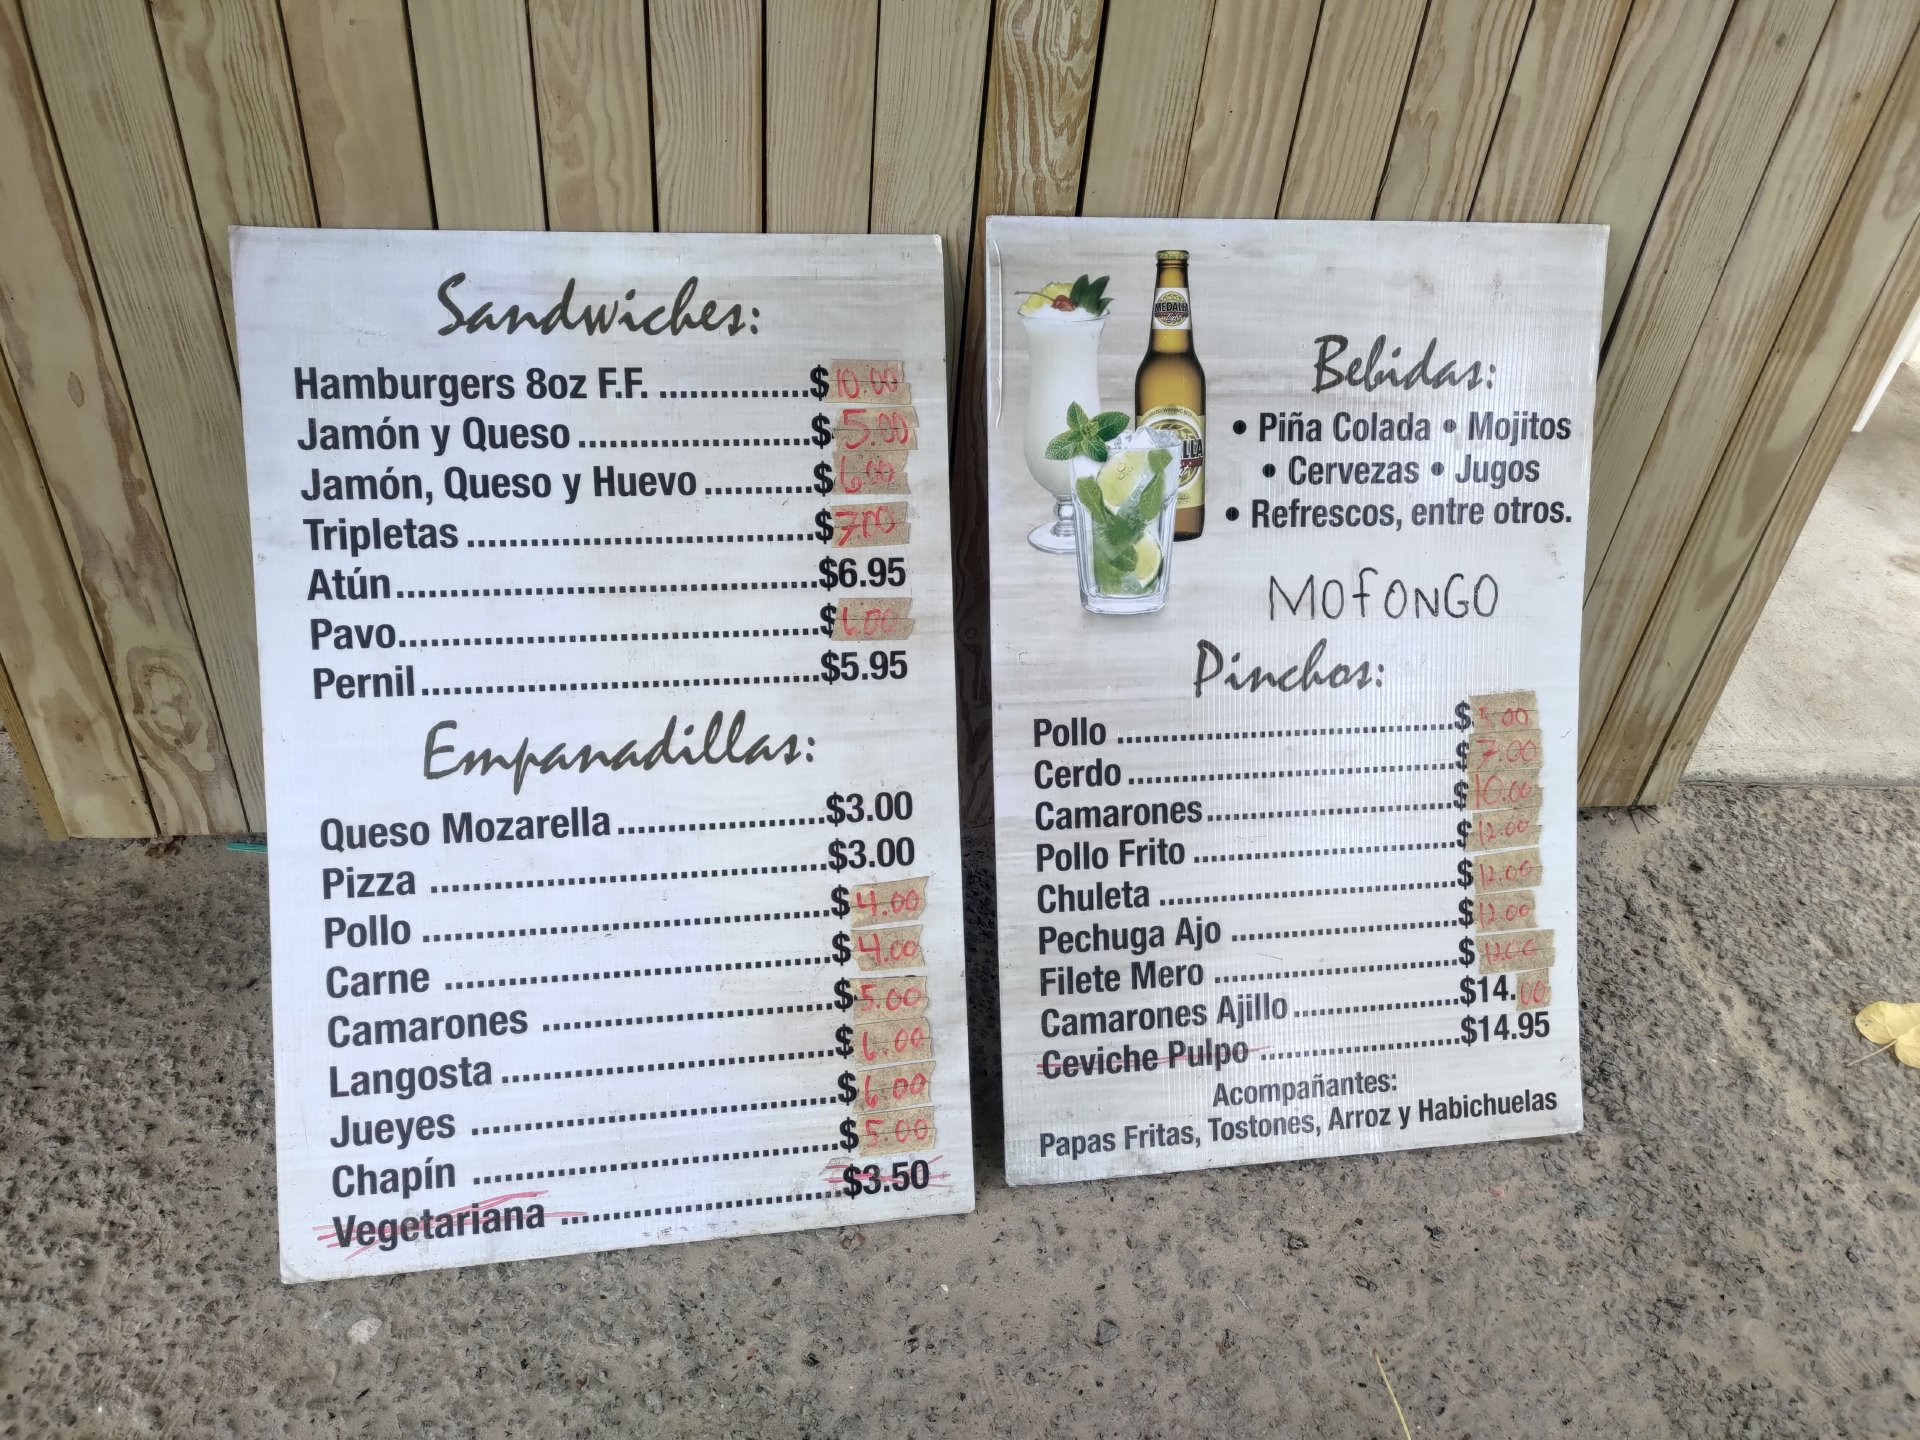 Sandwiches:
Hamburgers 8oz F.F. ...............$10.00
Jamón y Queso ........................$5.00
Jamón, Queso y Huevo ...........$6.00
Tripletas ....................................$7.00
Atún ...........................................$6.95
Pavo...........................................$6.00
Pernil .........................................$5.95
Empanadillas:
Queso Mozarella .....................$3.00
Pizza ........................................$3.00
Pollo .........................................$4.00
Carne .......................................$4.00
Camarones ..............................$5.00
Langosta ..................................$6.00
Jueyes .....................................$6.00
Chapín .....................................$5.00
Vegetariana .............................$3.50
MEDALLA
Light
LLA
Bebidas:
• Piña Colada • Mojitos
• Cervezas • Jugos
• Refrescos, entre otros.
MOFONGO
Pinchos:
Pollo ..........................................$5.00
Cerdo ........................................$7.00
Camarones ...............................$10.00
Pollo Frito .................................$12.00
Chuleta .....................................$12.00
Pechuga Ajo .............................$12.00
Filete Mero ...............................$
Camarones Ajillo ......................$14.00
Ceviche Pulpo ..........................$14.95
Acompañantes:
Papas Fritas, Tostones, Arroz y Habichuelas